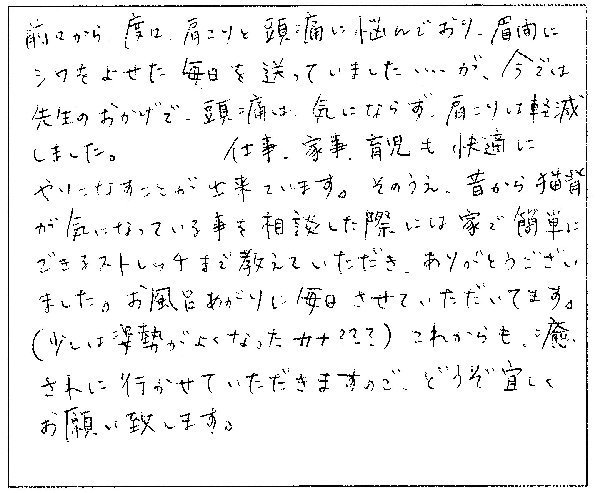 前々から 度々、肩こりと頭痛に悩んでおり、眉間に
シワをよせた毎日を送っていました…が、今では
先生のおかげで、頭痛は気にならず、肩こりは軽減
しました。 仕事、家事、育児も快適に
やりこなすことが出来ています。そのうえ、昔から猫背
が気になっている事を相談した際には家で簡単に
できるストレッチまで教えていただき、ありがとうござい
ました。お風呂あがりに毎日させていただいてます。
(少しは姿勢がよくなったカナ???) これからも、癒
されに行かせていただきますので、どうぞ宜しく
お願い致します。